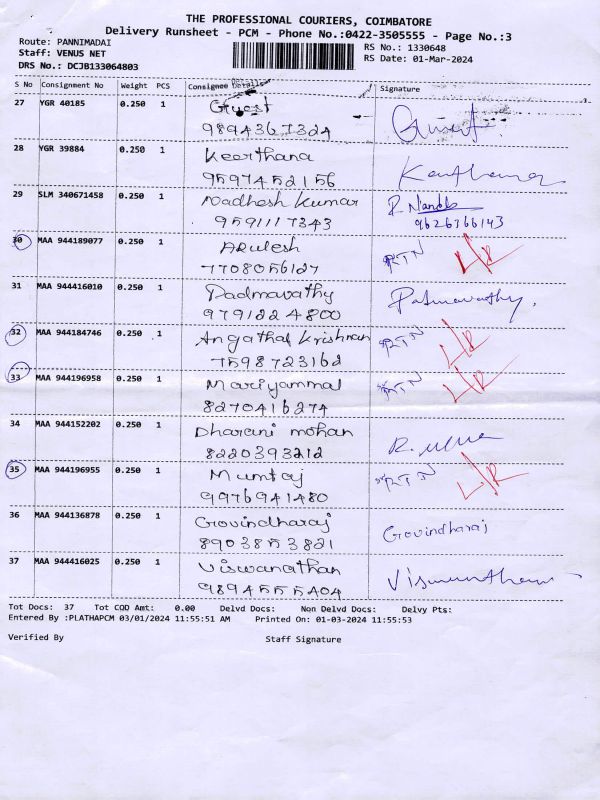 THE PROFESSIONAL COURIERS, COIMBATORE
Delivery Runsheet - PCM - Phone No.:0422-3505555 - Page No.:3
Route: PANNIMADAI
RS No.: 1330648
Staff: VENUS NET
RS Date: 01-Mar-2024
DRS No.: DCJB133064803
S No Consignment No Weight PCS Consignee Details Signature
27 YGR 40185 0.250 1 Guest
9894367324
28 YGR 39884 0.250 1 Keerthana Keerthana
9597452156
29 SLM 340671458 0.250 1 Nadhesh Kumar
9591117343 9626766143
30 MAA 944189077 0.250 1 Arulesh RTN L/R
7708056127
31 MAA 944416010 0.250 1 Padmavathy Patmavathy.
9791224800
32 MAA 944184746 0.250 1 Angathal Krishnan RTN L/R
7598723162
33 MAA 944196958 0.250 1 Mariyammal RTN L/R
8270416274
34 MAA 944152202 0.250 1 Dharani mohan
8220393212
35 MAA 944196955 0.250 1 Mumtaj RTN L/R
9976941480
36 MAA 944136878 0.250 1 Govindharaj Govindharaj
8903853821
37 MAA 944416025 0.250 1 Viswanathan
9894555404
Tot Docs: 37 Tot COD Amt: 0.00 Delvd Docs: Non Delvd Docs: Delvy Pts:
Entered By :PLATHAPCM 03/01/2024 11:55:51 AM Printed On: 01-03-2024 11:55:53
Verified By Staff Signature